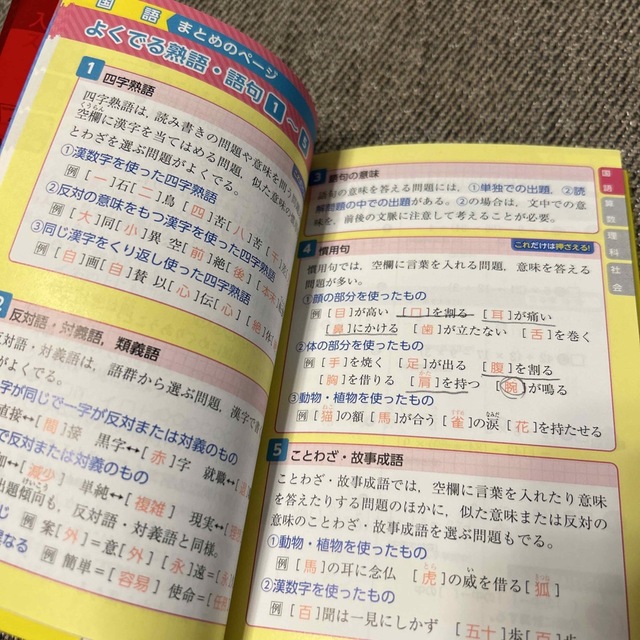 国語
まとめのページ
よくでる熟語・語句1〜5
1 四字熟語
四字熟語は、読み書きの問題や意味を問う
空欄に漢字を当てはめる問題、似た意味の
くうらん
とわざを選ぶ問題がよくでる。
①漢数字を使った四字熟語
例 [一]石[二]鳥 [四]苦[八]苦 [千]
②反対の意味をもつ漢字を使った四字熟語
例 [大]同[小]異 空[前]絶[後]
③同じ漢字をくり返し使った四字熟語
例 [自]画[自]賛 以[心]伝[心] [絶]体
2 反対語・対義語、類義語
語・対義語は、語群から選ぶ問題、漢字で
がよくでる。
字が同じで一字が反対または対義のもの
直接↔[間]接 黒字↔[赤]字 就職↔
で反対または対義のもの
加↔[減少] 単純↔[複雑] 現実↔
出題傾向も、反対語・対義語と同様。
けいこう
例 案[外]=意[外] [永]遠=[永]
例 簡単=[容易] 使命=[任
3 語句の意味
語句の意味を答える問題には、①単独での出題、②読
解問題の中での出題がある。②の場合は、文中での意
味を、前後の文脈に注意して考えることが必要。
4 慣用句
これだけは押さえる!
慣用句では、空欄に言葉を入れる問題、意味を答える
問題が多い。
①頭の部分を使ったもの
例 [目]が高い [口]を割る [耳]が痛い
[鼻]にかける [歯]が立たない [舌]を巻く
②体の部分を使ったもの
例 [手]を焼く [足]が出る [腹]を割る
[胸]を借りる [肩]を持つ [腕]が鳴る
かた
③動物・植物を使ったもの
例 [猫]の額 [馬]が合う [雀]の涙 [花]を持たせる
ねこ すずめ なみだ
5 ことわざ・故事成語
ことわざ・故事成語では、空欄に言葉を入れたり意味
を答えたりする問題のほかに、似た意味または反対の
意味のことわざ・故事成語を選ぶ問題もでる。
①動物・植物を使ったもの
例 [馬]の耳に念仏 [虎]の威を借る[狐]
とら い きつね
②漢数字を使ったもの
例 [百]聞は一見にしかず [五十]歩[百]歩
国語
算数
理科
社会